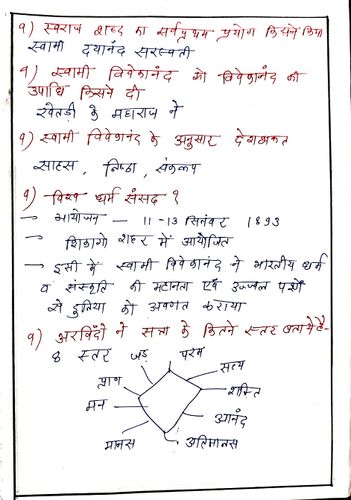 १) स्वराज शब्द का सर्वप्रथम प्रयोग किसने किया
स्वामी दयानंद सरस्वती
१) स्वामी विवेकानंद को विवेकानंद की
उपाधि किसने दी
खेतड़ी के महाराज ने
१) स्वामी विवेकानंद के अनुसार देशभक्त
साहस, निष्ठा, संकल्प
१) विश्व धर्म संसद ?
→ आयोजन – 11-13 सितंबर 1893
→ शिकागो शहर में आयोजित
→ इसी में स्वामी विवेकानंद ने भारतीय धर्म
व संस्कृति की महानता एवं उज्जल पक्षों
से दुनिया को अवगत कराया
१) अरविंदो ने सत्ता के कितने स्तर बताये है-
8 स्तर
जड़
परम
सत्य
प्राण
शक्ति
मन
आनंद
मानस
अतिमानस